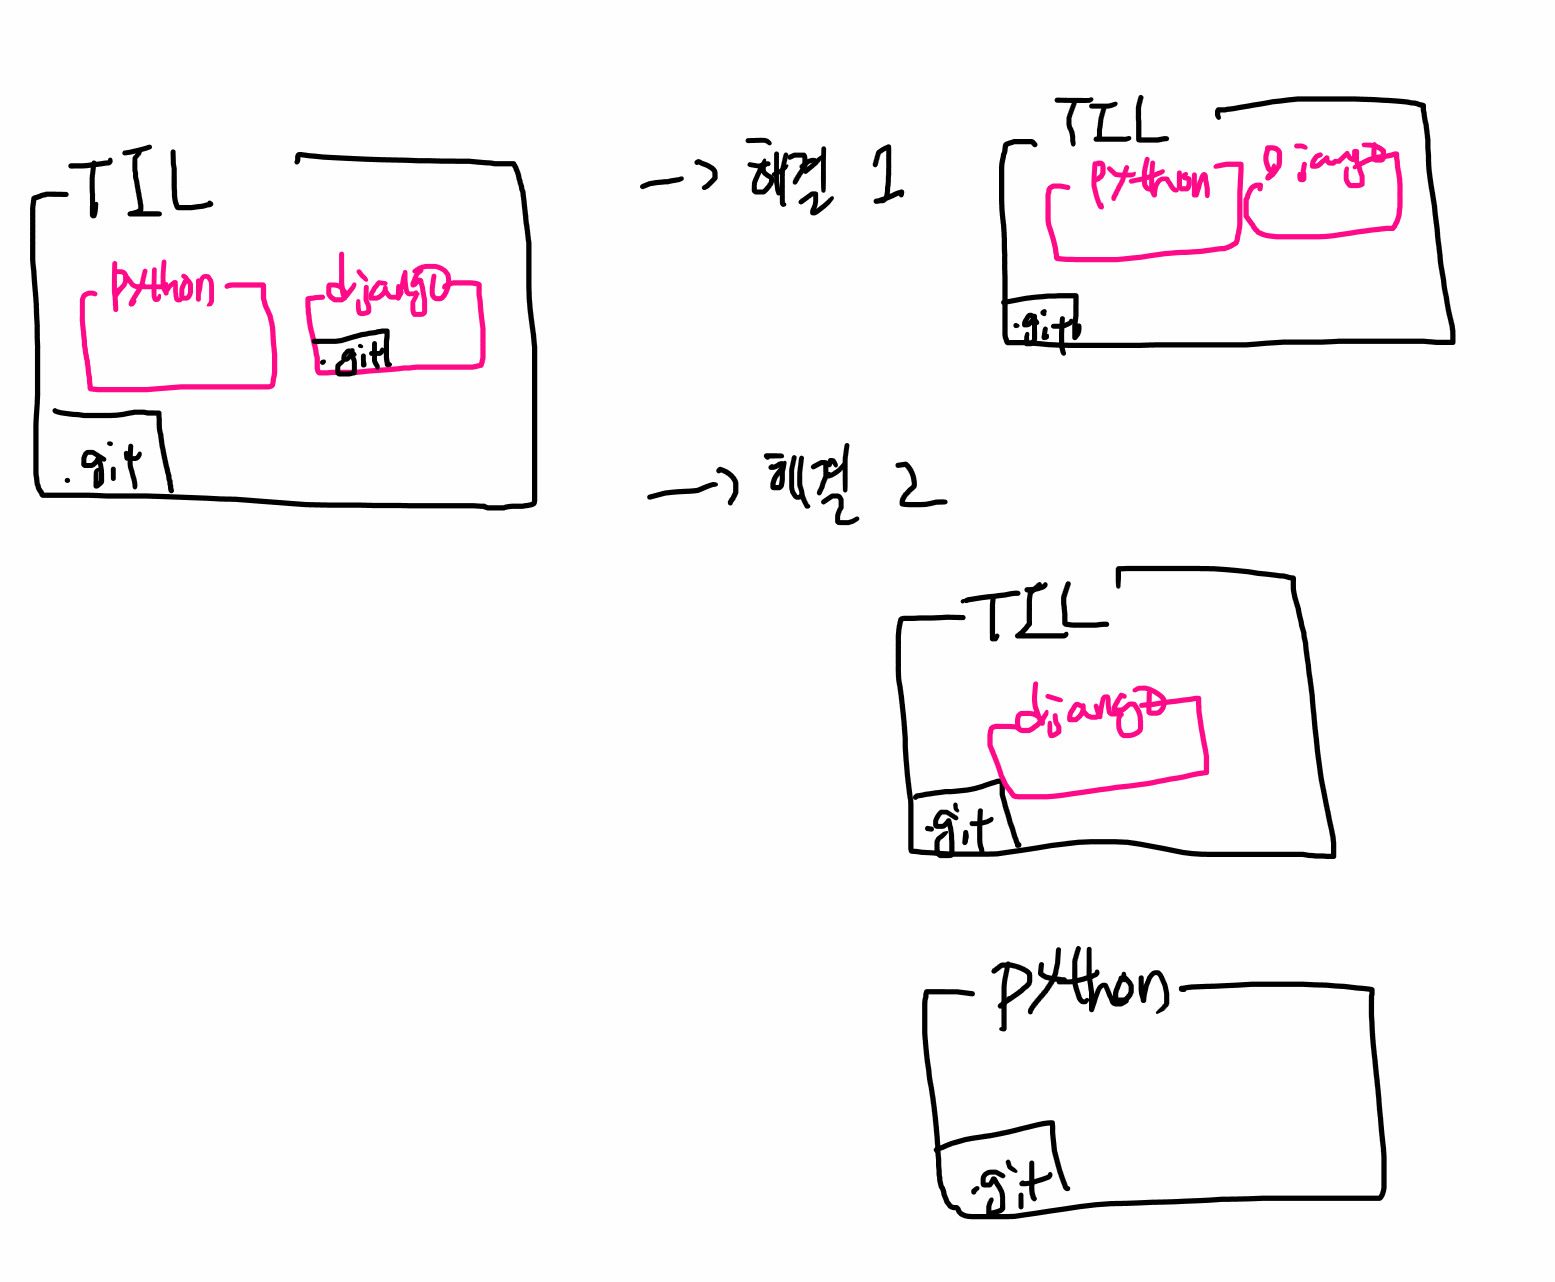 TIL
python
django
.git
.git
→ 해결 1
TIL
python
Django
.git
→ 해결 2
TIL
django
.git
python
.git